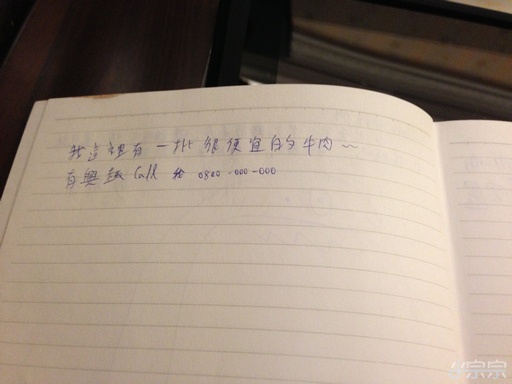 我這裡有一批很便宜的牛肉~
有興趣Call 我 0800-000-000
宗宗